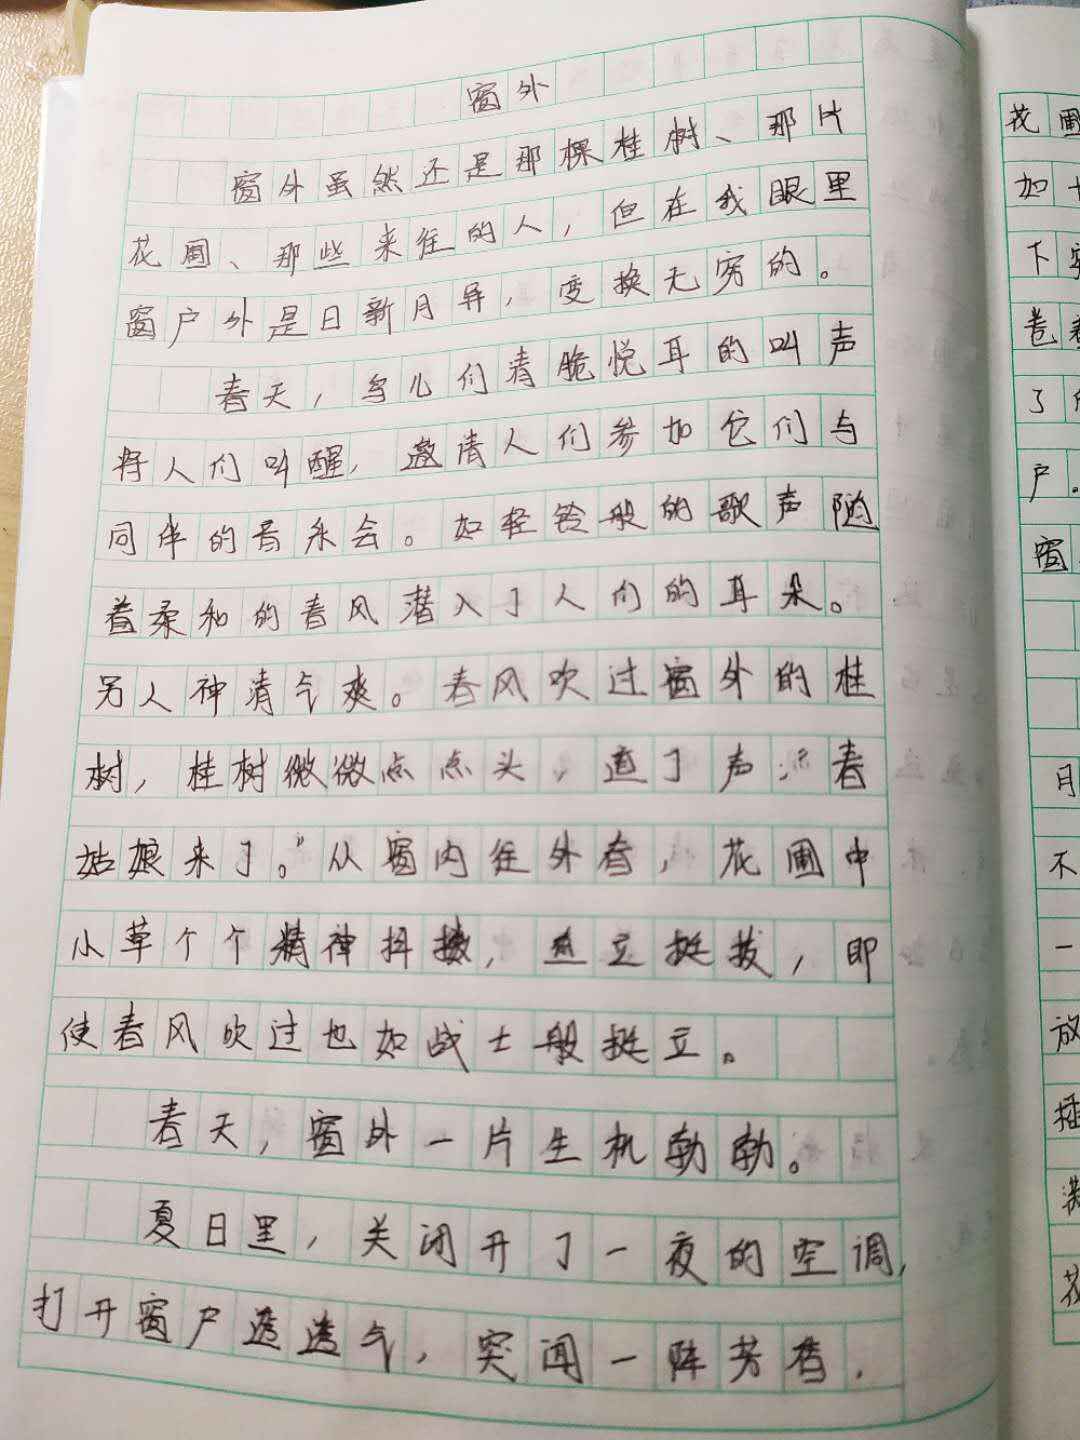 窗外
窗外虽然还是那棵桂树、那片
花圃、那些来往的人，但在我眼里
窗户外是日新月异，变换无穷的。
春天，鸟儿们清脆悦耳的叫声
将人们叫醒，邀请人们参加它们与
同伴的音乐会。如轻铃般的歌声随
着柔和的春风潜入了人们的耳朵。
另人神清气爽。春风吹过窗外的桂
树，桂树微微点点头，道了声：春
姑娘来了。”从窗内往外看，花圃中
小草个个精神抖擞，直立挺拔，即
使春风吹过也如战士般挺立。
春天，窗外一片生机勃勃。
夏日里，关闭开了一夜的空调，
打开窗户透透气，突闻一阵芳香，
花圃
加
下
卷着
了
户。
窗
月
不
一
放
插
花